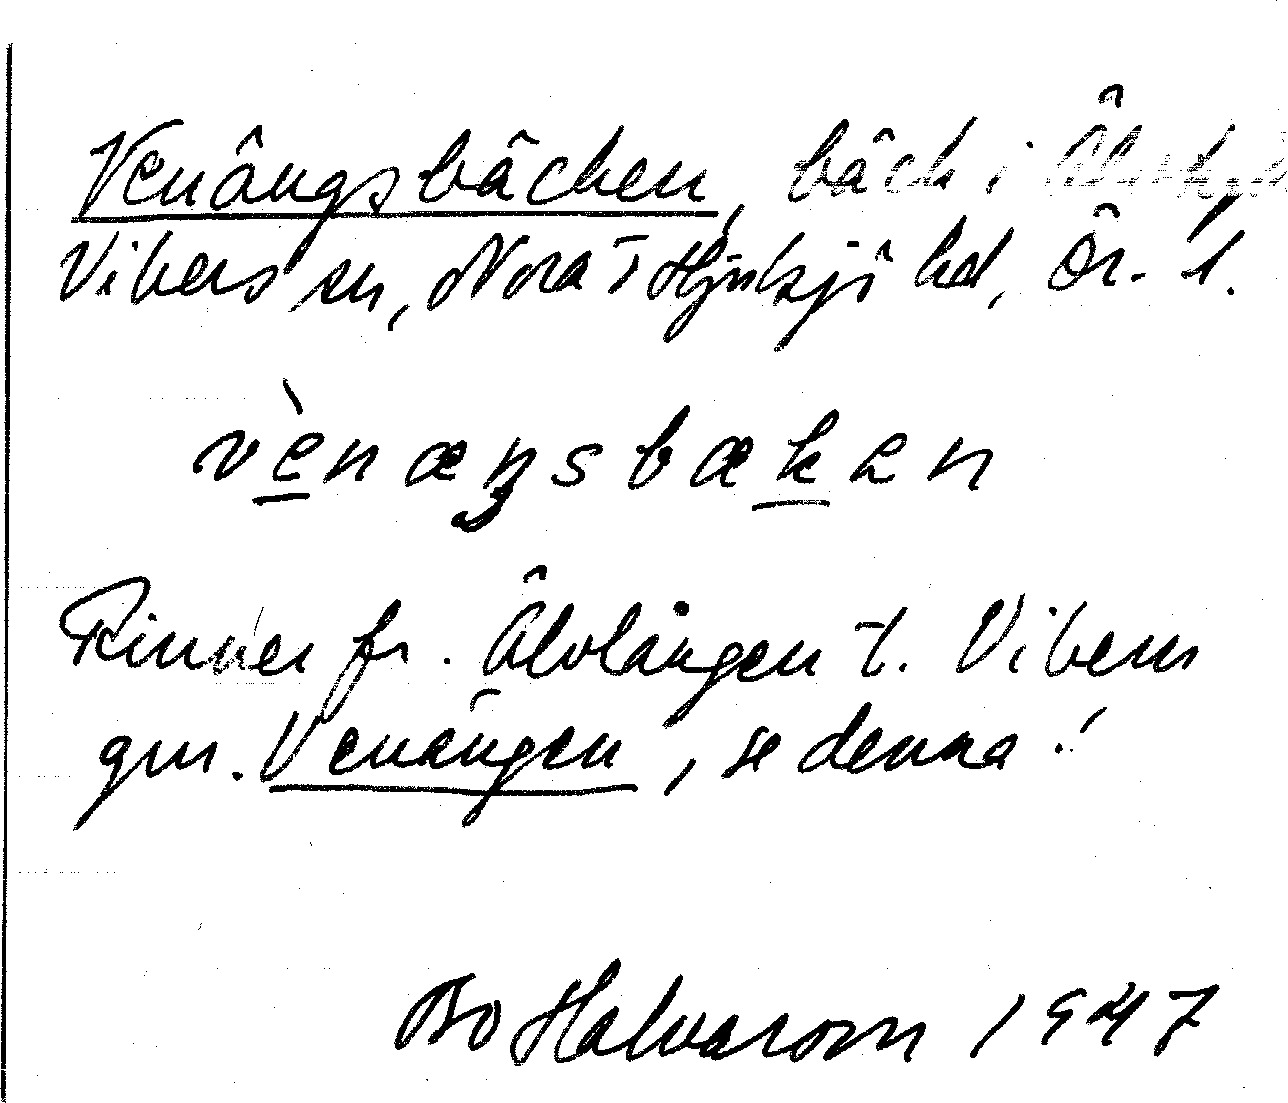 Venängsbäcken, bäck i
Vikers sn, Nora o Hjulsjö hd, Ör. l.
vènæŋsbækɛn
Rinner fr. Älvlången t. Vikern
gm. Venängen, se denna!
Bo Halvarson 1947